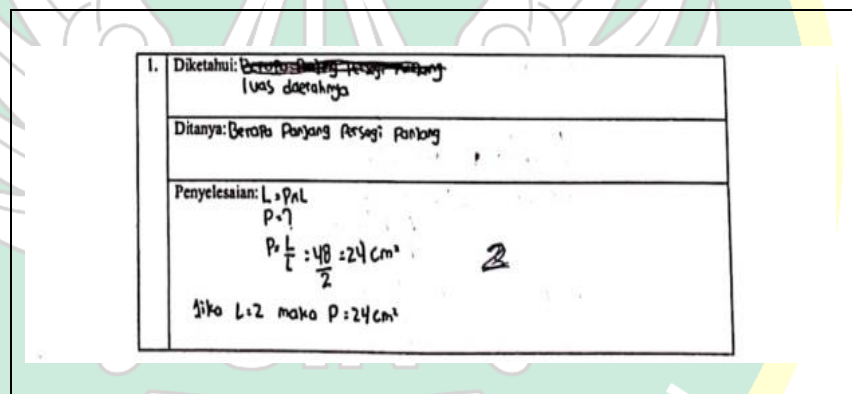 1. Diketahui: Berapa Panjang Persegi Panjang
luas daerahnya
Ditanya: Berapa Panjang Persegi Panjang
Penyelesaian: L = P x L
P = ?
P = L/L = 48/2 = 24 cm²
2
Jika L = 2 maka P = 24 cm²